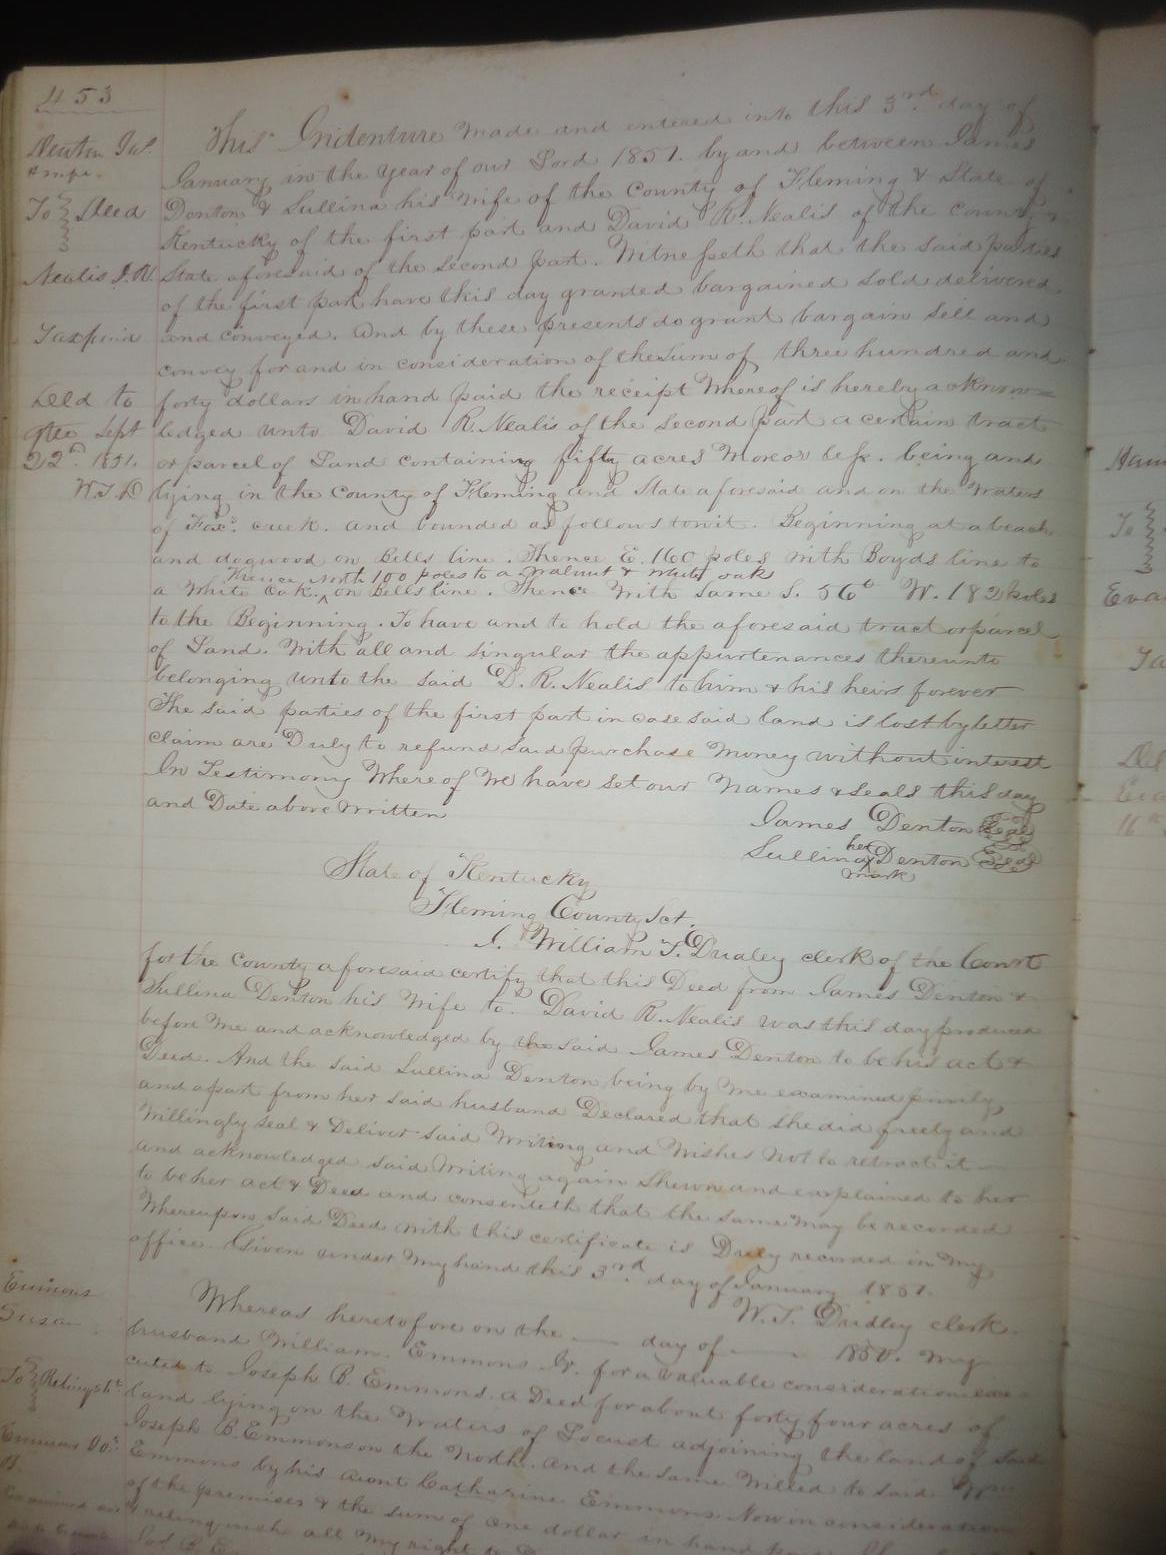 453
This Indenture made and entered into this 3rd day of
January in the year of our Lord 1851. by and between James
Denton & Sullina his Wife of the County of Fleming & State of
Kentucky of the first part and David R. Nealis of the County &
State aforesaid of the second part. Witnesseth that the said parties
of the first part have this day granted bargained sold delivered
and conveyed. And by these presents do grant bargain sell and
convey for and in consideration of the sum of three hundred and
forty dollars in hand paid the receipt whereof is hereby acknow=
ledged unto David R. Nealis of the second part a certain tract
or parcel of Land containing fifty acres More or less. being and
lying in the County of Fleming and State aforesaid and on the Waters
of Fox's creek. and bounded as follows towit. Beginning at a beach
and dogwood on Bells line. Thence E. 160 poles with Boyds line to
Thence North 100 poles to a Walnut & White oak
a White Oak. ^ on Bells line. Thence With same S. 56° W. 182 poles
to the Beginning. To have and to hold the aforesaid tract or parcel
of Land. With all and singular the appurtenances thereunto
belonging unto the said D. R. Nealis to him & his heirs forever
The said parties of the first part in case said land is lost by better
claim are Duly to refund said purchase Money without interest
In Testimony Whereof We have set our Names & seals this day
and Date above Written
James Denton Seal
her
Sullina X Denton Seal
mark
State of Kentucky
Fleming County Sct.
I. William T. Dudley clerk of the Court
for the County aforesaid certify that this Deed from James Denton &
Sullina Denton his Wife to. David R. Nealis was this day produced
before Me and acknowledged by the said James Denton to be his act &
Deed. And the said Sullina Denton being by Me examined privily,
and apart from her said husband Declared that she did freely and
Willingly seal & Deliver said Writing and Wishes Not to retract it
and acknowledged said Writing again Shewn and explained to her
to be her act & Deed and consenteth that the same May be recorded
Whereupon said Deed with this certificate is Duly recorded in My
office. Given under My hand this 3rd day of January 1851.
W. T. Dudley clerk.
Whereas heretofore on the — day of — 1850. My
husband William Emmons Jr. for a valuable consideration exe
cuted to Joseph B. Emmons. a Deed for about forty four acres of
land lying on the Waters of Locust adjoining the land of said
Joseph B. Emmons on the North. and the same Willed to said Wm
Emmons by his Aunt Catharine Emmons. Now in consideration
of the premises & the sum of one dollar in hand
relinquish all My right to
Newton Jas.
To Deed
Nealis D. R.
Tax paid
Deld to
Gtee Sept
22nd 1851.
W.T.D
Emmons
Susan
To Relinqsht
Emmons
Ham
To
Eva
Ta
Del